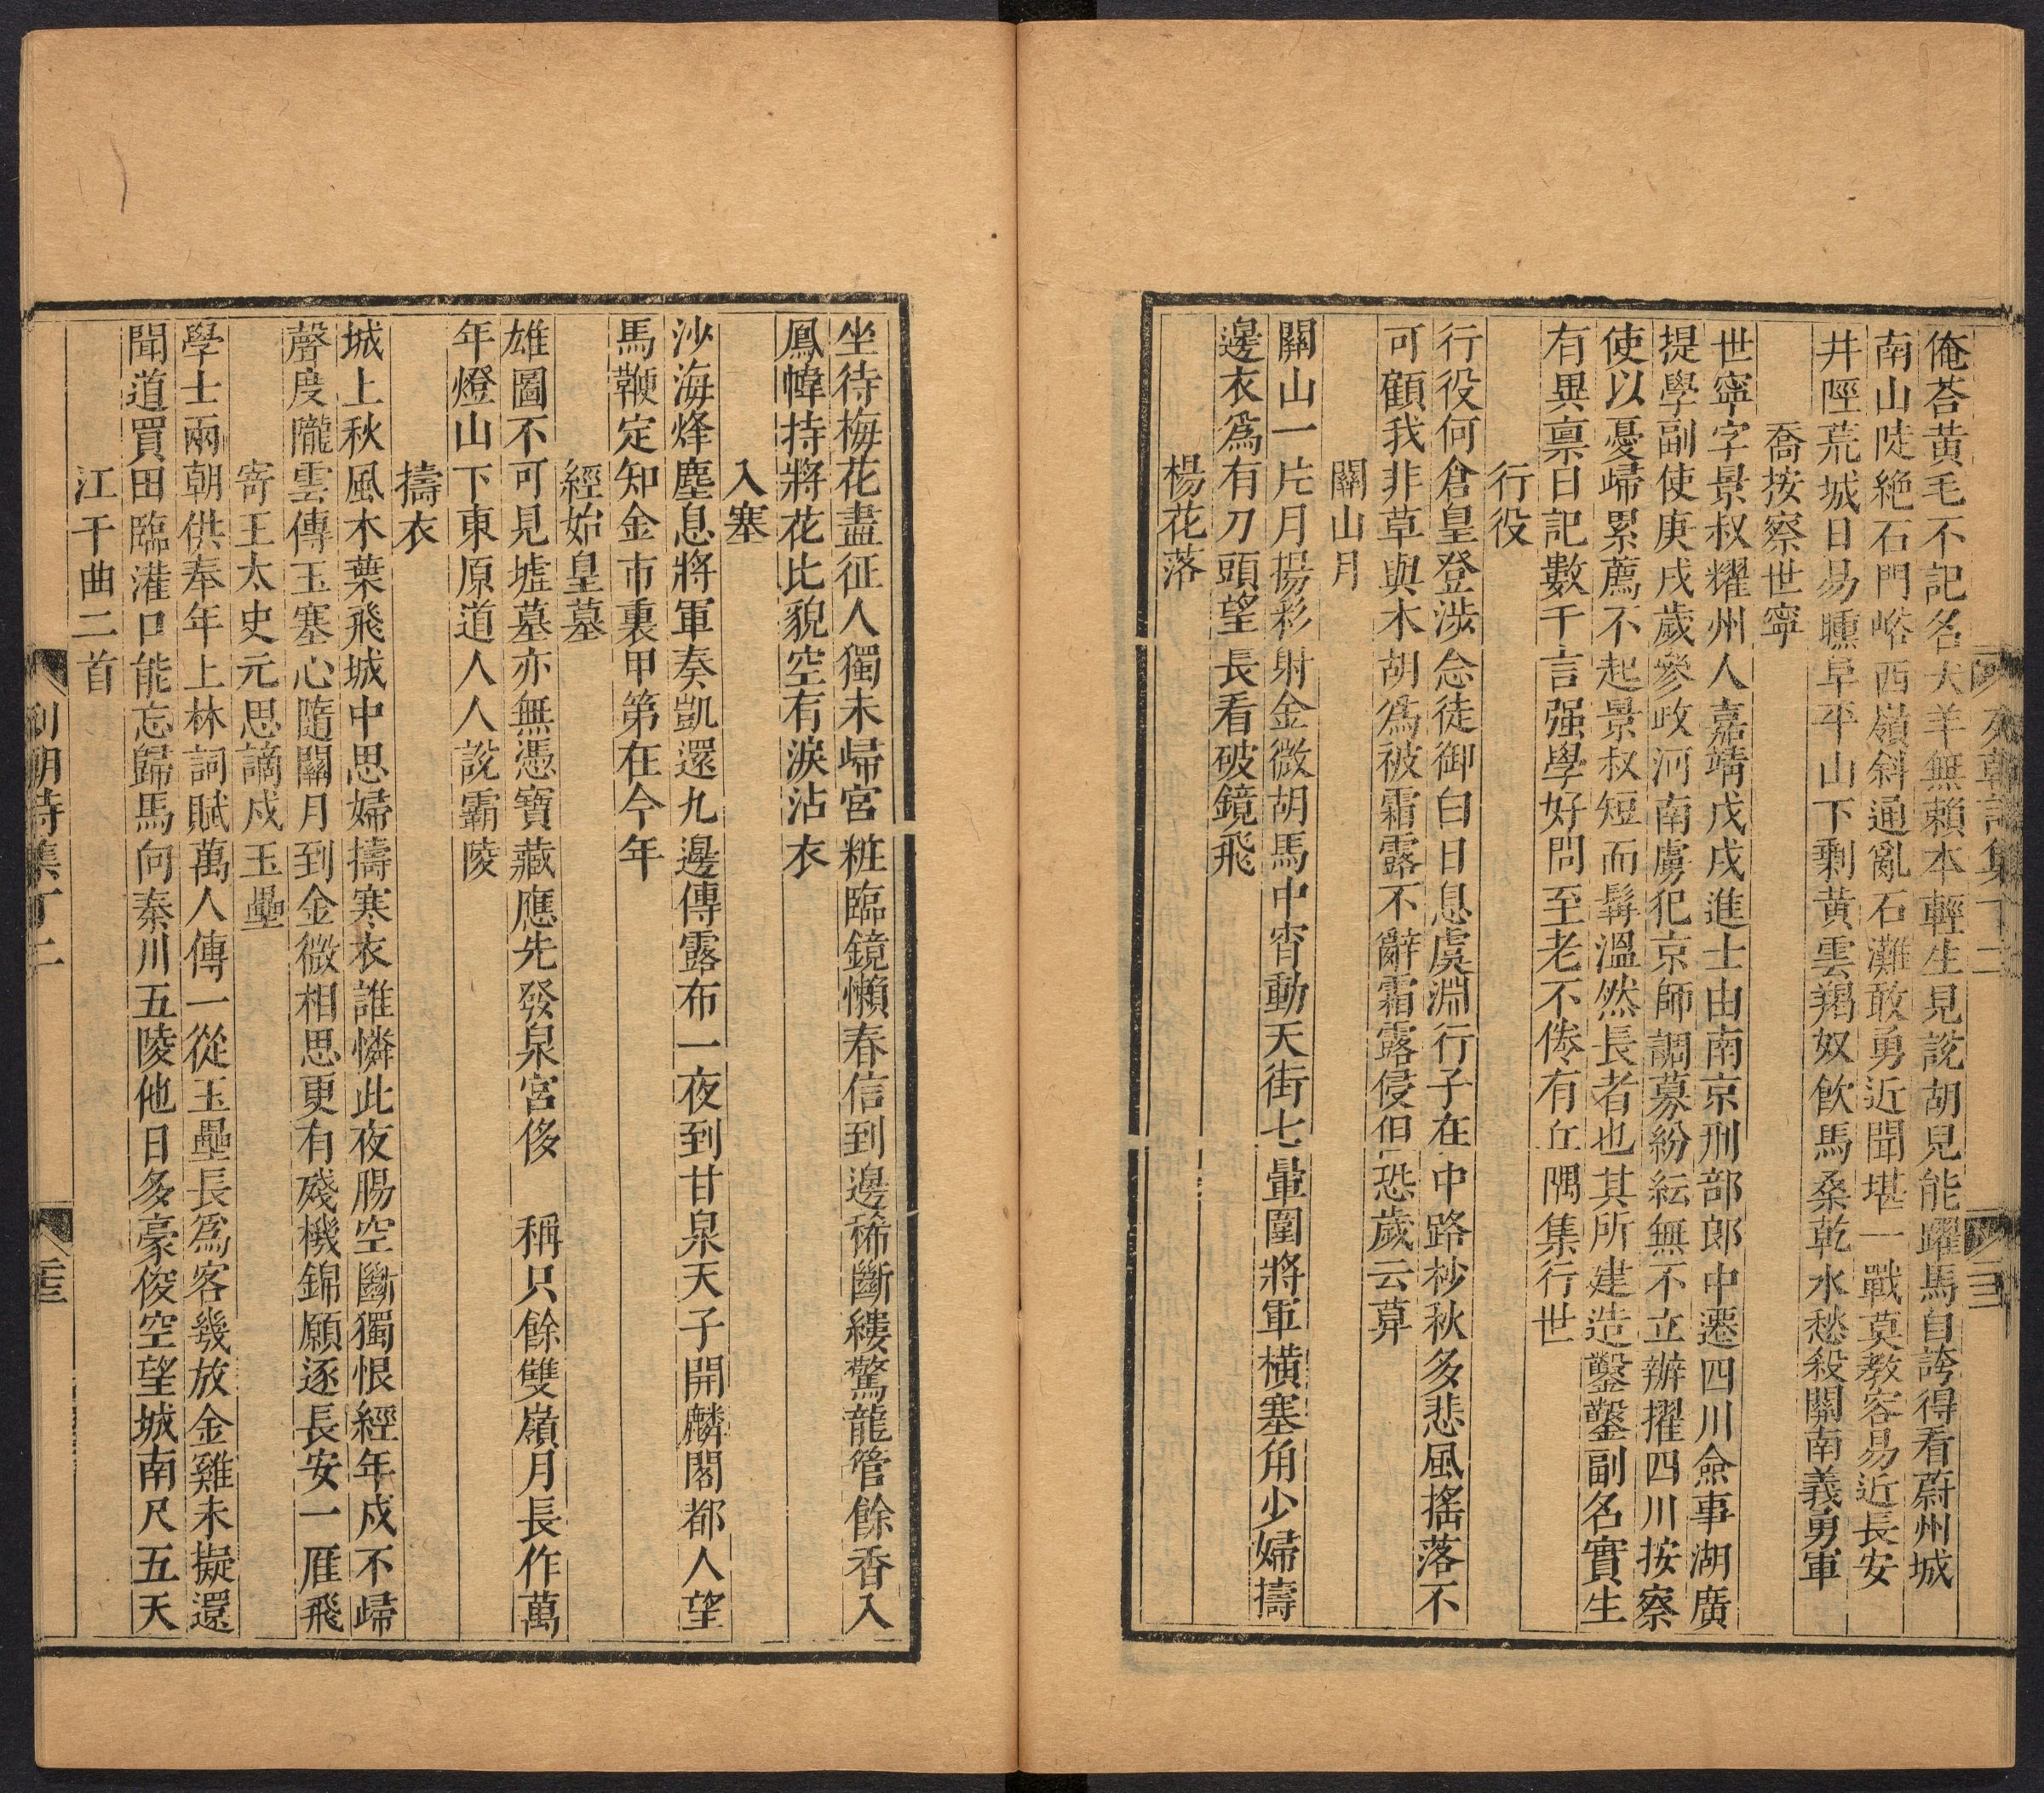 俺荅黃毛不記名犬羊無賴本輕生見說胡兒能躍馬自誇得看蔚州城
南山陡絕石門峪西嶺斜通亂石灘敢勇近聞堪一戰莫教容易近長安
井陘荒城日易曛阜平山下剩黃雲羯奴飲馬桑乾水愁殺關南義勇軍
喬按察世寧
世寧字景叔耀州人嘉靖戊戌進士由南京刑部郎中遷四川僉事湖廣
提學副使庚戌歲參政河南虜犯京師調募紛紜無不立辦擢四川按察
使以憂歸累薦不起景叔短而髯溫然長者也其所建造鑿鑿副名實生
有異稟日記數千言强學好問至老不倦有丘隅集行世
行役
行役何倉皇登涉念徒御白日息虞淵行子在中路杪秋多悲風搖落不
可顧我非草與木胡爲被霜露不辭霜露侵但恐歲云莫
關山月
關山一片月揚彩射金微胡馬中宵動天街七暈圍將軍橫塞角少婦擣
邊衣爲有刀頭望長看破鏡飛
楊花落
坐待梅花盡征人獨未歸宮粧臨鏡懶春信到邊稀斷縷驚龍管餘香入
鳳幃持將花比貌空有淚沾衣
入塞
沙海烽塵息將軍奏凱還九邊傳露布一夜到甘泉天子開麟閣都人望
馬鞭定知金市裏甲第在今年
經始皇墓
雄圖不可見墟墓亦無憑寶藏應先發泉宮侈 稱只餘雙嶺月長作萬
年燈山下東原道人人說霸陵
擣衣
城上秋風木葉飛城中思婦擣寒衣誰憐此夜腸空斷獨恨經年戍不歸
聲度隴雲傳玉塞心隨關月到金微相思更有殘機錦願逐長安一雁飛
寄王太史元思謫戍玉壘
學士兩朝供奉年上林詞賦萬人傳一從玉壘長爲客幾放金雞未擬還
聞道買田臨灌口能忘歸馬向秦川五陵他日多豪俊空望城南尺五天
江干曲二首
列朝詩集丁二